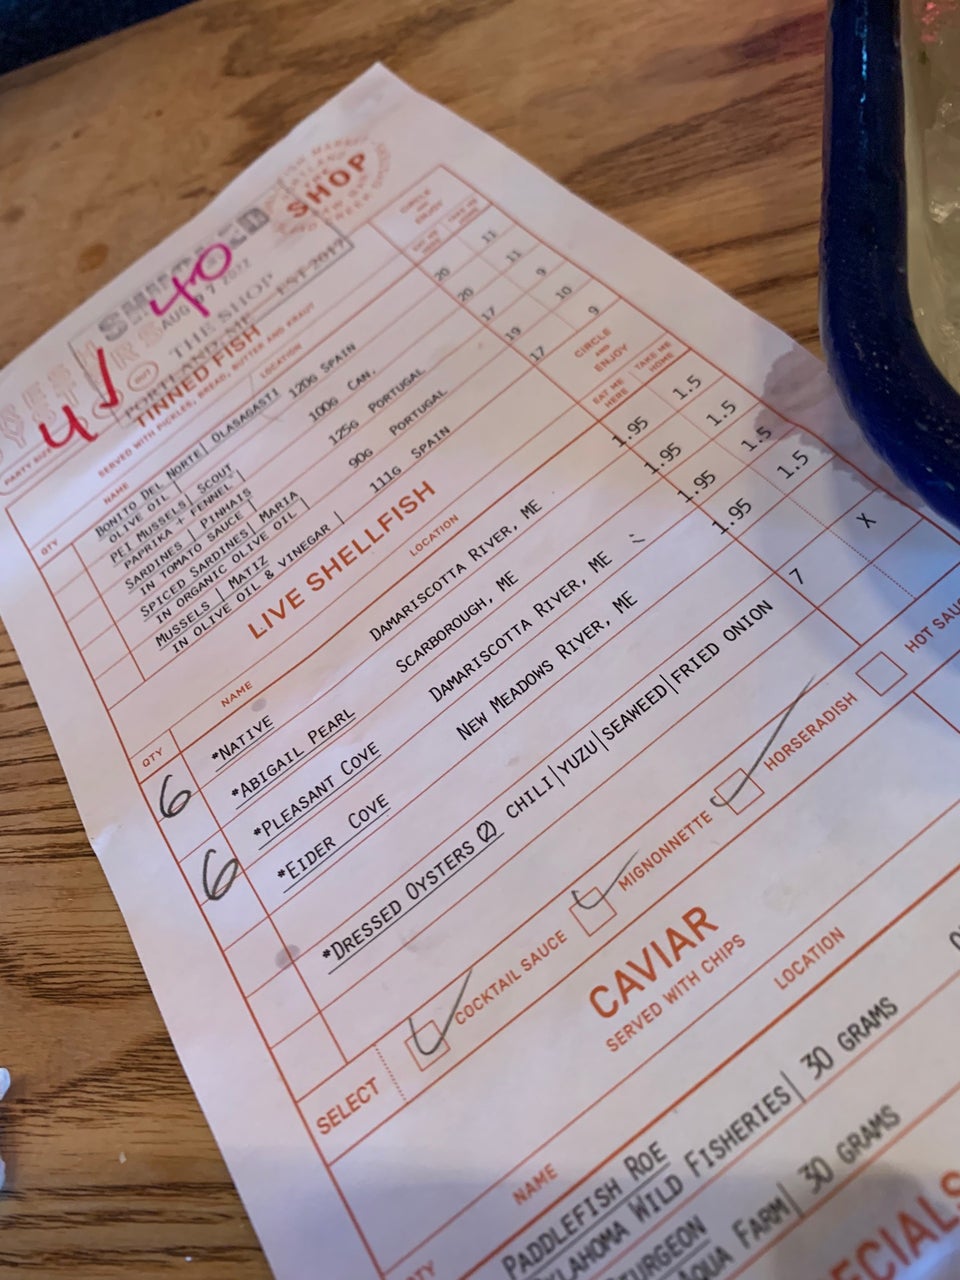 SHOP
40
AUG 07 2022
THE SHOP
EST. 2017
PORTLAND, ME
PARTY SIZE
4
TINNED FISH
SERVED WITH PICKLES, BREAD, BUTTER AND KRAUT
CIRCLE AND ENJOY
EAT ME HERE TAKE ME HOME
QTY NAME LOCATION
BONITO DEL NORTE | OLASAGASTI 120G SPAIN 20 11
OLIVE OIL
PEI MUSSELS | SCOUT 100G CAN. 20 11
PAPRIKA + FENNEL
SARDINES | PINHAIS 125G PORTUGAL 17 9
IN TOMATO SAUCE
SPICED SARDINES | MARIA 90G PORTUGAL 19 10
IN ORGANIC OLIVE OIL
MUSSELS | MATIZ 111G SPAIN 17 9
IN OLIVE OIL & VINEGAR |
LIVE SHELLFISH
CIRCLE AND ENJOY
EAT ME HERE TAKE ME HOME
QTY NAME LOCATION
6 *NATIVE DAMARISCOTTA RIVER, ME 1.95 1.5
*ABIGAIL PEARL SCARBOROUGH, ME 1.95 1.5
6 *PLEASANT COVE DAMARISCOTTA RIVER, ME 1.95 1.5
*EIDER COVE NEW MEADOWS RIVER, ME 1.95 1.5
*DRESSED OYSTERS (2) CHILI|YUZU|SEAWEED|FRIED ONION 7 X
SELECT COCKTAIL SAUCE MIGNONNETTE HORSERADISH HOT SAU
CAVIAR
SERVED WITH CHIPS
QTY NAME LOCATION
PADDLEFISH ROE
KLAHOMA WILD FISHERIES| 30 GRAMS
TURGEON
AQUA FARM| 30 GRAMS
ECIALS